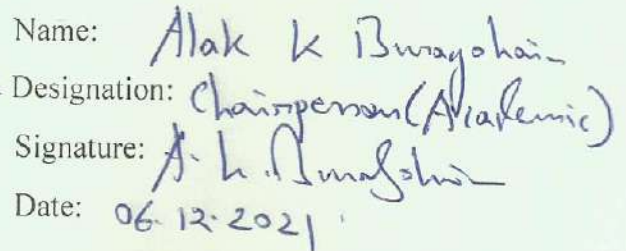 Name: Alak K Buragohain
Designation: Chairperson (Academic)
Signature: A. K. Buragohain
Date: 06.12.2021